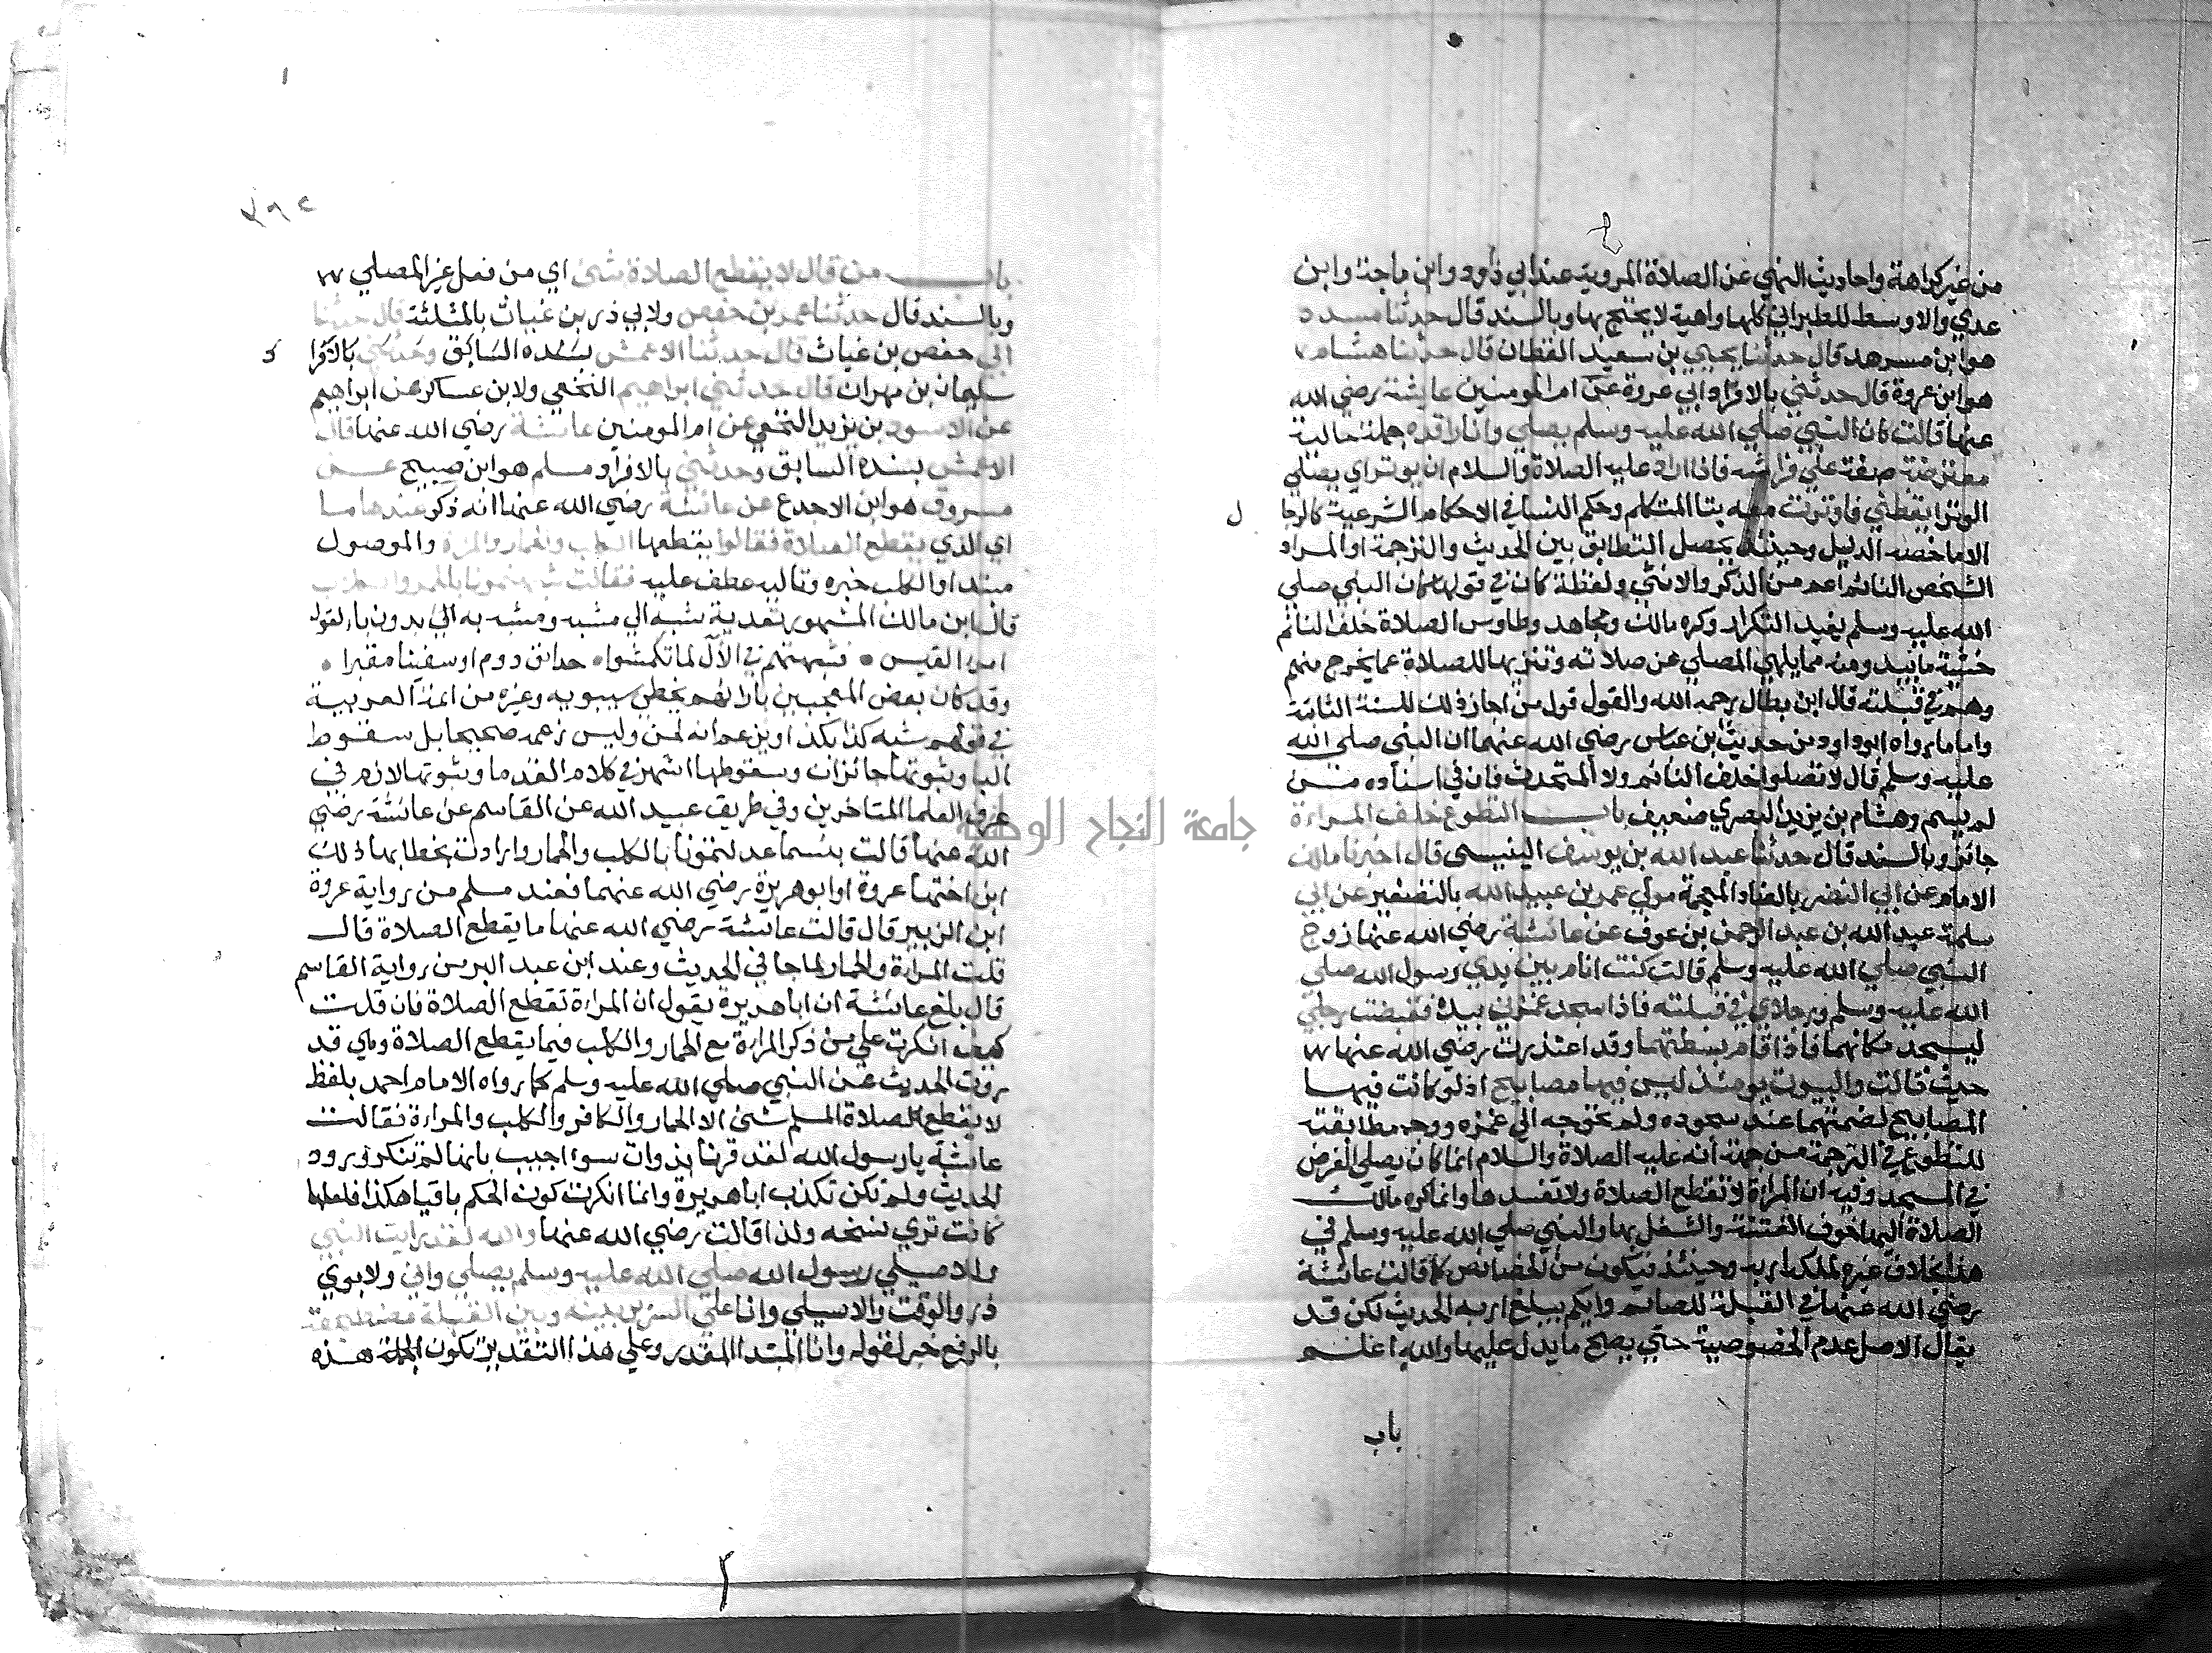 من غير كراهة واحاديث النهي عن الصلاة المروية عند ابي داود وابن ماجة وابن
عدي والاوسط للطبراني كلها واهية لا يحتج بها وبالسند قال حدثنا مسدد
هو ابن مسرهد قال حدثنا يحيي بن سعيد القطان قال حدثنا هشام
هو ابن عروة قال حدثني بالافراد ابي عروة عن ام المومنين عايشة رضي الله
عنها قالت كان النبي صلي الله عليه وسلم يصلي وانا راقدة جملة حالية
معترضة صفة علي فراشه فاذا اراد عليه الصلاة والسلام ان يوتر اي يصلي
الوتر ايقظني فاوترت معه بتا المتكلم وحكم النسا في الاحكام الشرعية كالرجا
ل
الا ما خصه الدليل وحينئذ يحصل التطابق بين الحديث والترجمة او المراد
الشخص النائم اعم من الذكر والانثي ولفظة كان في قولها كان النبي صلي
الله عليه وسلم يفيد التكرار وكره مالك ومجاهد وطاوس الصلاة خلف النائم
خشية ما يبدو منه مما يلهي المصلي عن صلاته وتنزيها للصلاة عما يخرج منهم
وهم في قبلته قال ابن بطال رحمه الله والقول قول من اجاز ذلك للسنة الثابتة
واما ما رواه ابو داود من حديث بن عباس رضي الله عنهما ان النبي صلي الله
عليه وسلم قال لا تصلوا خلف النائم ولا المتحدث فان في اسناده من
لم يسم وهشام بن يزيد البصري ضعيف باب التطوع خلف المراءة
جائز وبالسند قال حدثنا عبد الله بن يوسف التنيسي قال اخبرنا مالك
الامام عن ابي النضر بالضاد المعجمة مولي عمر بن عبيد الله بالتصغير عن ابي
سلمة عبد الله بن عبد الرحمن بن عوف عن عائشة رضي الله عنها زوج
النبي صلي الله عليه وسلم قالت كنت انام بين يدي رسول الله صلي
الله عليه وسلم ورجلاي في قبلته فاذا سجد غمزني بيده فقبضت رجلي
ليسجد مكانهما فاذا قام بسطتهما وقد اعتذرت رضي الله عنها
حيث قالت والبيوت يومئذ ليس فيها مصابيح اذ لو كانت فيها
المصابيح لضمتهما عند سجوده ولم تحوجه الي غمزه ووجه مطابقته
للتطوع في الترجمة من جهة انه عليه الصلاة والسلام انما كان يصلي الفرض
في المسجد وفيه ان المراة لا تقطع الصلاة ولا تفسدها وانما كره مالك
الصلاة اليها لخوف الفتنة والشغل بها والنبي صلي الله عليه وسلم في
هذا بخلاف غيره لملكه اربه وحينئذ فيكون من الخصائص كما قالت عائشة
رضي الله عنها في القبلة للصائم وايكم يبلغ اربه الحديث لكن قد
يقال الاصل عدم الخصوصية حتي يصح ما يدل عليها والله اعلم
باب
باب من قال لا يقطع الصلاة شئ اي من فعل غير المصلي
وبالسند قال حدثنا عمر بن حفص ولابي ذر بن غياث بالمثلثة قال حدثنا
ابي حفص بن غياث قال حدثنا الاعمش بسنده السابق وحدثني بالافرا
د
سليمان بن مهران قال حدثني ابراهيم النخعي ولابن عساكر عن ابراهيم
عن الاسود بن يزيد النخعي عن ام المومنين عائشة رضي الله عنها قال
الاعمش بسنده السابق وحدثني بالافراد مسلم هو ابن صبيح عن
مسروق هو ابن الاجدع عن عائشة رضي الله عنها انه ذكر عندها ما
اي الذي يقطع الصلاة فقالوا يقطعها الكلب والحمار والمراة والموصول
مبتدا والكلب خبره وتاليه عطف عليه فقالت شبهتمونا بالحمر والكلاب
قال ابن مالك المشهور تعدية شبه الي مشبه ومشبه به الي بدون باء لقول
امرء القيس • فشبهتهم في الآل لما تكمشوا • حدائق دوم او سفينا مقيرا •
وقد كان بعض المعجبين بآرائهم يخطي سيبويه وغيره من ائمة العربية
في قولهم شبه كذا بكذا ويزعم انه لحن وليس زعمه صحيحا بل سقوط
البا وثبوتها جائزان وسقوطها اشهر في كلام القدما وثبوتها لازم في
عرف العلما المتاخرين وفي طريق عبيد الله عن القاسم عن عائشة رضي
الله عنها قالت بئسما عدلتمونا بالكلب والحمار وارادت بخطابها ذلك
ابن اختها عروة او ابو هريرة رضي الله عنهما فعند مسلم من رواية عروة
ابن الزبير قال قالت عائشة رضي الله عنها ما يقطع الصلاة قال
قلت المراءة والحمار لما جا في الحديث وعند ابن عبد البر من رواية القاسم
قال بلغ عائشة ان ابا هريرة يقول ان المراءة تقطع الصلاة فان قلت
كيف انكرت علي من ذكر المراءة مع الحمار والكلب فيما يقطع الصلاة وهي قد
روت الحديث عن النبي صلي الله عليه وسلم كما رواه الامام احمد بلفظ
لا يقطع صلاة المسلم شئ الا الحمار والكافر والكلب والمراءة فقالت
عائشة يا رسول الله لقد قرنا بذوات سوء اجيب بانها لم تنكر ورود
الحديث ولم تكن تكذب ابا هريرة وانما انكرت كون الحكم باقيا هكذا فلعلها
كانت تري نسخه ولذا قالت رضي الله عنها والله لقد رايت النبي
وللاصيلي رسول الله صلي الله عليه وسلم يصلي واني ولابوي
ذر والوقت والاصيلي وانا علي السرير بينه وبين القبلة مضطجعة
بالرفع خبر لقوله وانا المبتدا المقدر وعلي هذا التقدير تكون الجملة هذه
جامعة النجاح الوطنية